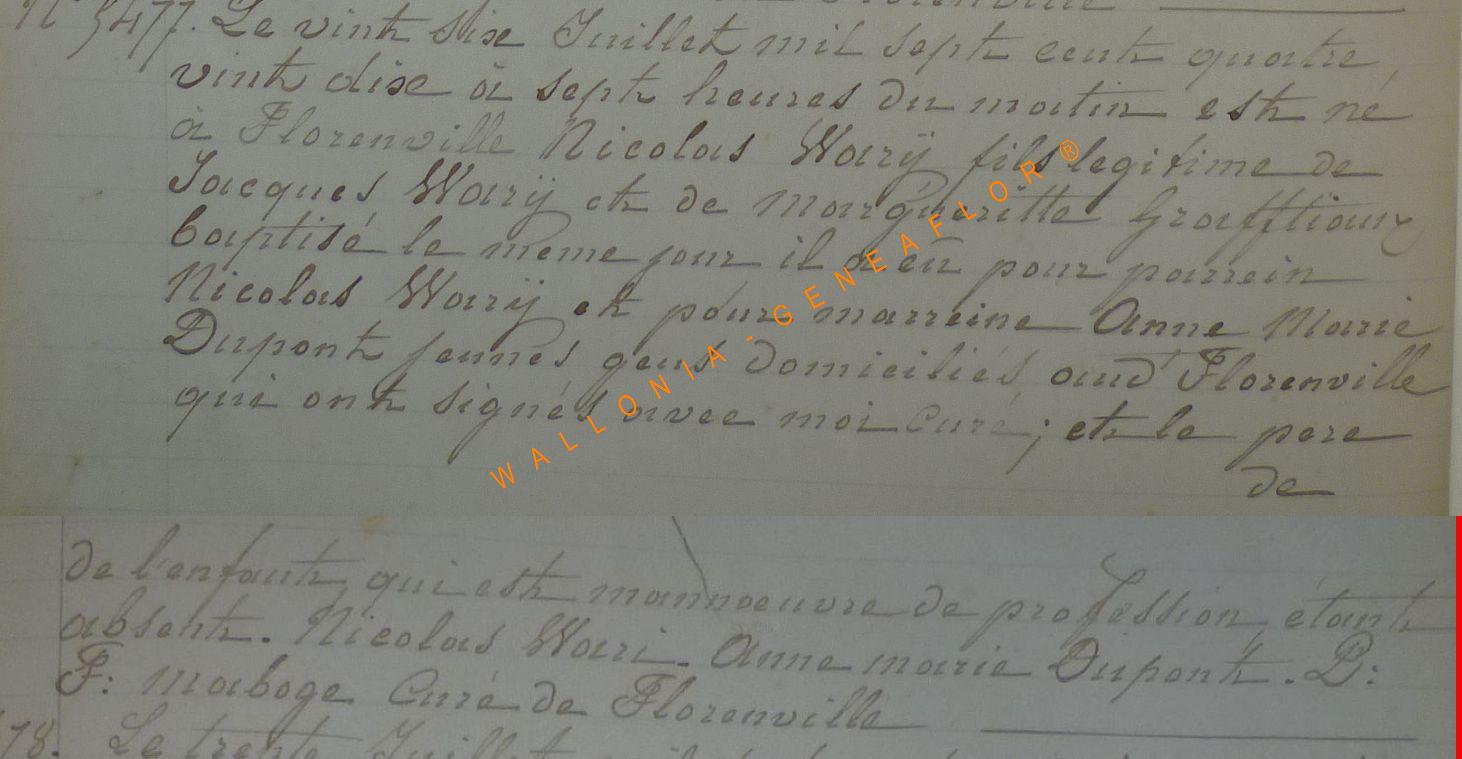 Florenville
N° 5477. Le vint six Juillet mil sept cent quatre,
vint dix à sept heures du matin est né
à Florenville Nicolas Warÿ fils legitime de
Jacques Warÿ et de Margueritte Grafftiaux
baptisé le meme jour il a eü pour parrein
Nicolas Warÿ et pour marreine Anne Marie
Dupont jeunes gens domiciliés aud Florenville
qui ont signés avec moi Curé; et le pere
de
WALLONIA - GENEAFLOR ®
de l'enfant, qui est mannoeuvre de profession, étant
absent. Nicolas Wari. Anne marie Dupont. D:
F: Maboge Curé de Florenville
78. Le trente Juillet